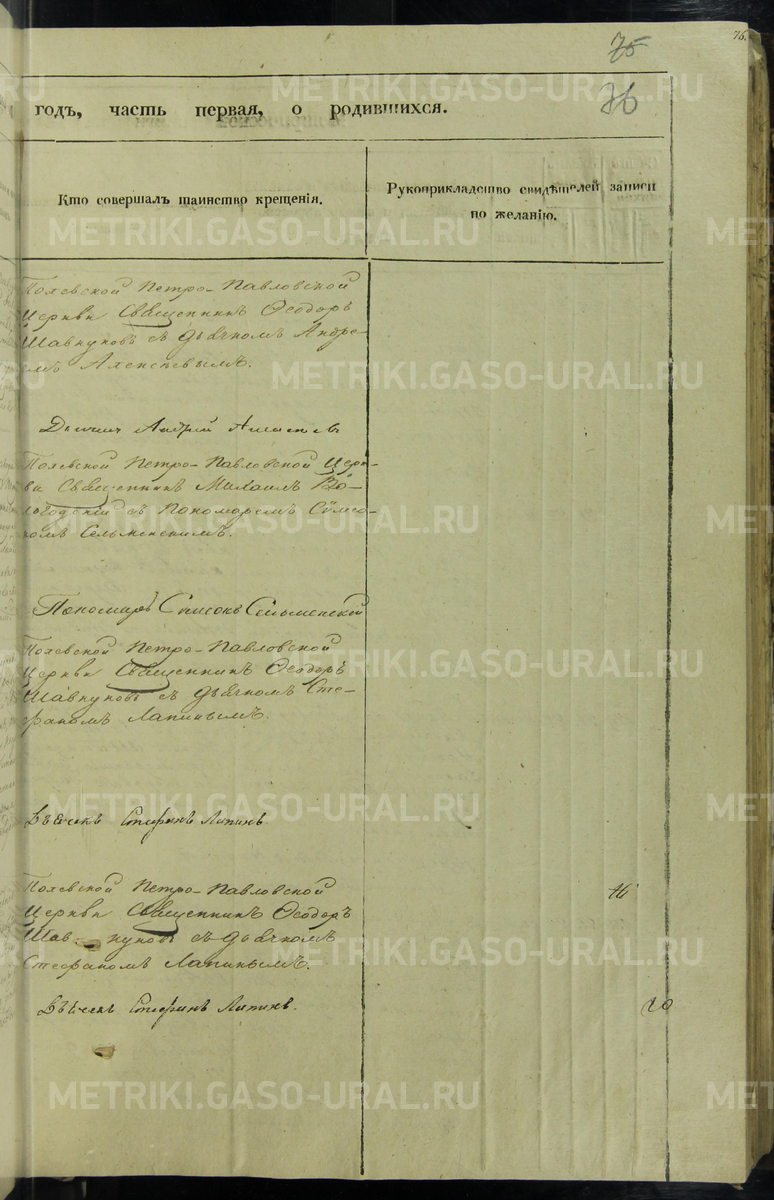 76.
75
76
годъ, часть первая, о родившихся.
Кто совершалъ таинство крещенія.
Рукоприкладство свидѣтелей записи
по желанію.
Полевской Петро-Павловской
Церкви Священникъ Ѳеодоръ
Шавкуновъ съ дьячкомъ Андре-
емъ Алексѣевымъ.
Дьячекъ Андрей
Полевской Петро-Павловской Церк-
ви Священникъ Михаилъ Во-
логодскій съ Пономаремъ Сѷмео-
номъ Сельменскимъ.
Пономарь Сельменской
Полевской Петро-Павловской
Церкви Священникъ Ѳеодоръ
Шавкуновъ съ дьячкомъ Сте-
фаномъ Лапинымъ.
Стефанъ Лапинъ
Полевской Петро-Павловской
Церкви Священникъ Ѳеодоръ
Шав- куновъ съ дьячкомъ
Стефаномъ Лапинымъ.
Стефанъ Лапинъ.
METRIKI.GASO-URAL.RU